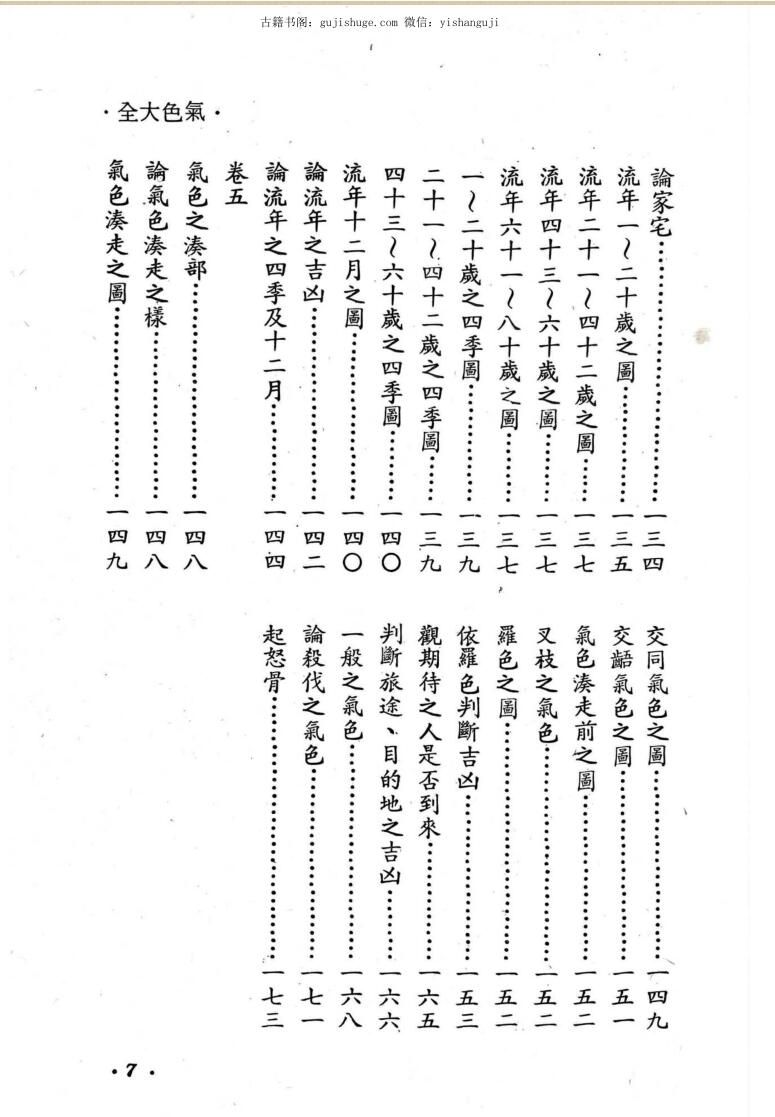 古籍书阁：gujishuge.com 微信：yishanguji
·全大色氣·
論家宅……一三四
流年一～二十歲之圖……一三五
流年二十一～四十二歲之圖……一三七
流年四十三～六十歲之圖……一三七
流年六十一～八十歲之圖……一三七
一～二十歲之四季圖……一三九
二十一～四十二歲之四季圖……一三九
四十三～六十歲之四季圖……一四〇
流年十二月之圖……一四〇
論流年之吉凶……一四二
論流年之四季及十二月……一四四
卷五
氣色之湊部……一四八
論氣色湊走之樣……一四八
氣色湊走之圖……一四九
交同氣色之圖……一四九
交齬氣色之圖……一五一
氣色湊走前之圖……一五二
叉枝之氣色……一五二
羅色之圖……一五二
依羅色判斷吉凶……一五三
觀期待之人是否到來……一六五
判斷旅途、目的地之吉凶……一六六
一般之氣色……一六八
論殺伐之氣色……一七一
起怒骨……一七三
·7·